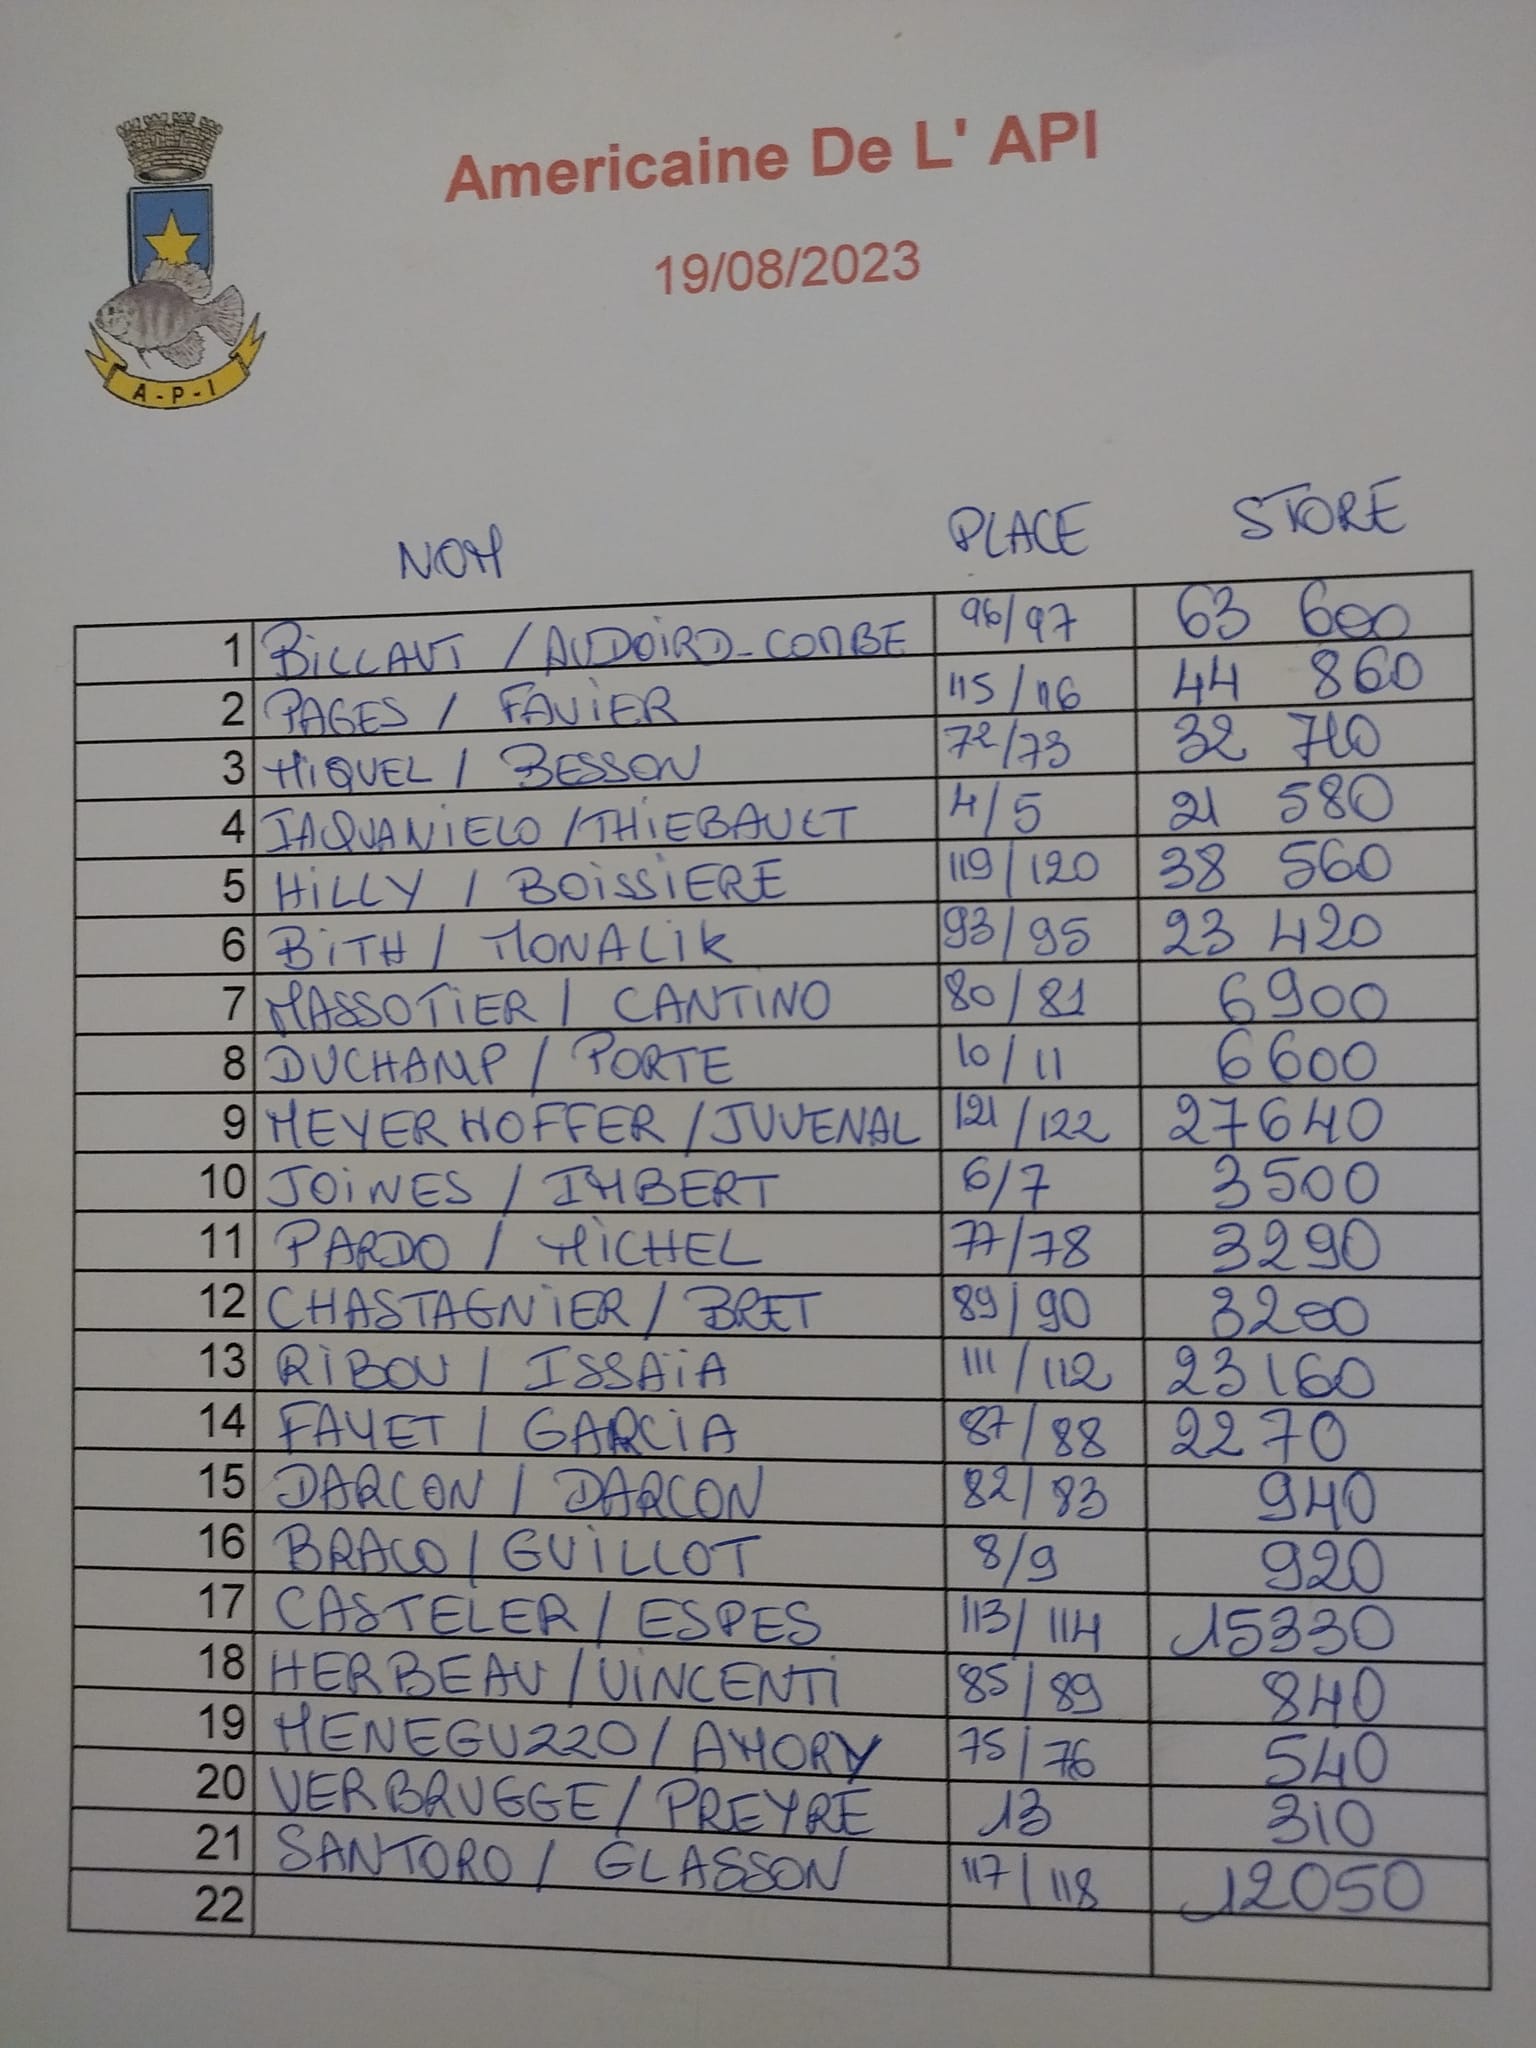 Americaine De L' API
19/08/2023
A-P-I
NOM PLACE STORE
1 BILLAUT / AUDOIRD-COMBE 96/97 63 600
2 PAGES / FAVIER 115/116 44 860
3 MIQUEL / BESSON 72/73 32 710
4 IAQUANIELO / THIEBAULT 4/5 21 580
5 HILLY / BOISSIERE 119/120 38 560
6 BITH / MONALIK 93/95 23 420
7 MASSOTIER / CANTINO 80/81 6900
8 DUCHAMP / PORTE 10/11 6600
9 MEYERHOFFER / JUVENAL 121/122 27640
10 JOINES / IMBERT 6/7 3500
11 PARDO / MICHEL 77/78 3290
12 CHASTAGNIER / BRET 89/90 3200
13 RIBOU / ISSAÏA 111/112 23160
14 FAYET / GARCIA 87/88 2270
15 DARCON / DARCON 82/83 940
16 BRACO / GUILLOT 8/9 920
17 CASTELER / ESPES 113/114 15330
18 HERBEAU / VINCENTI 85/89 840
19 MENEGUZZO / AMORY 75/76 540
20 VERBRUGGE / PREYRE 13 310
21 SANTORO / GLASSON 117/118 12050
22